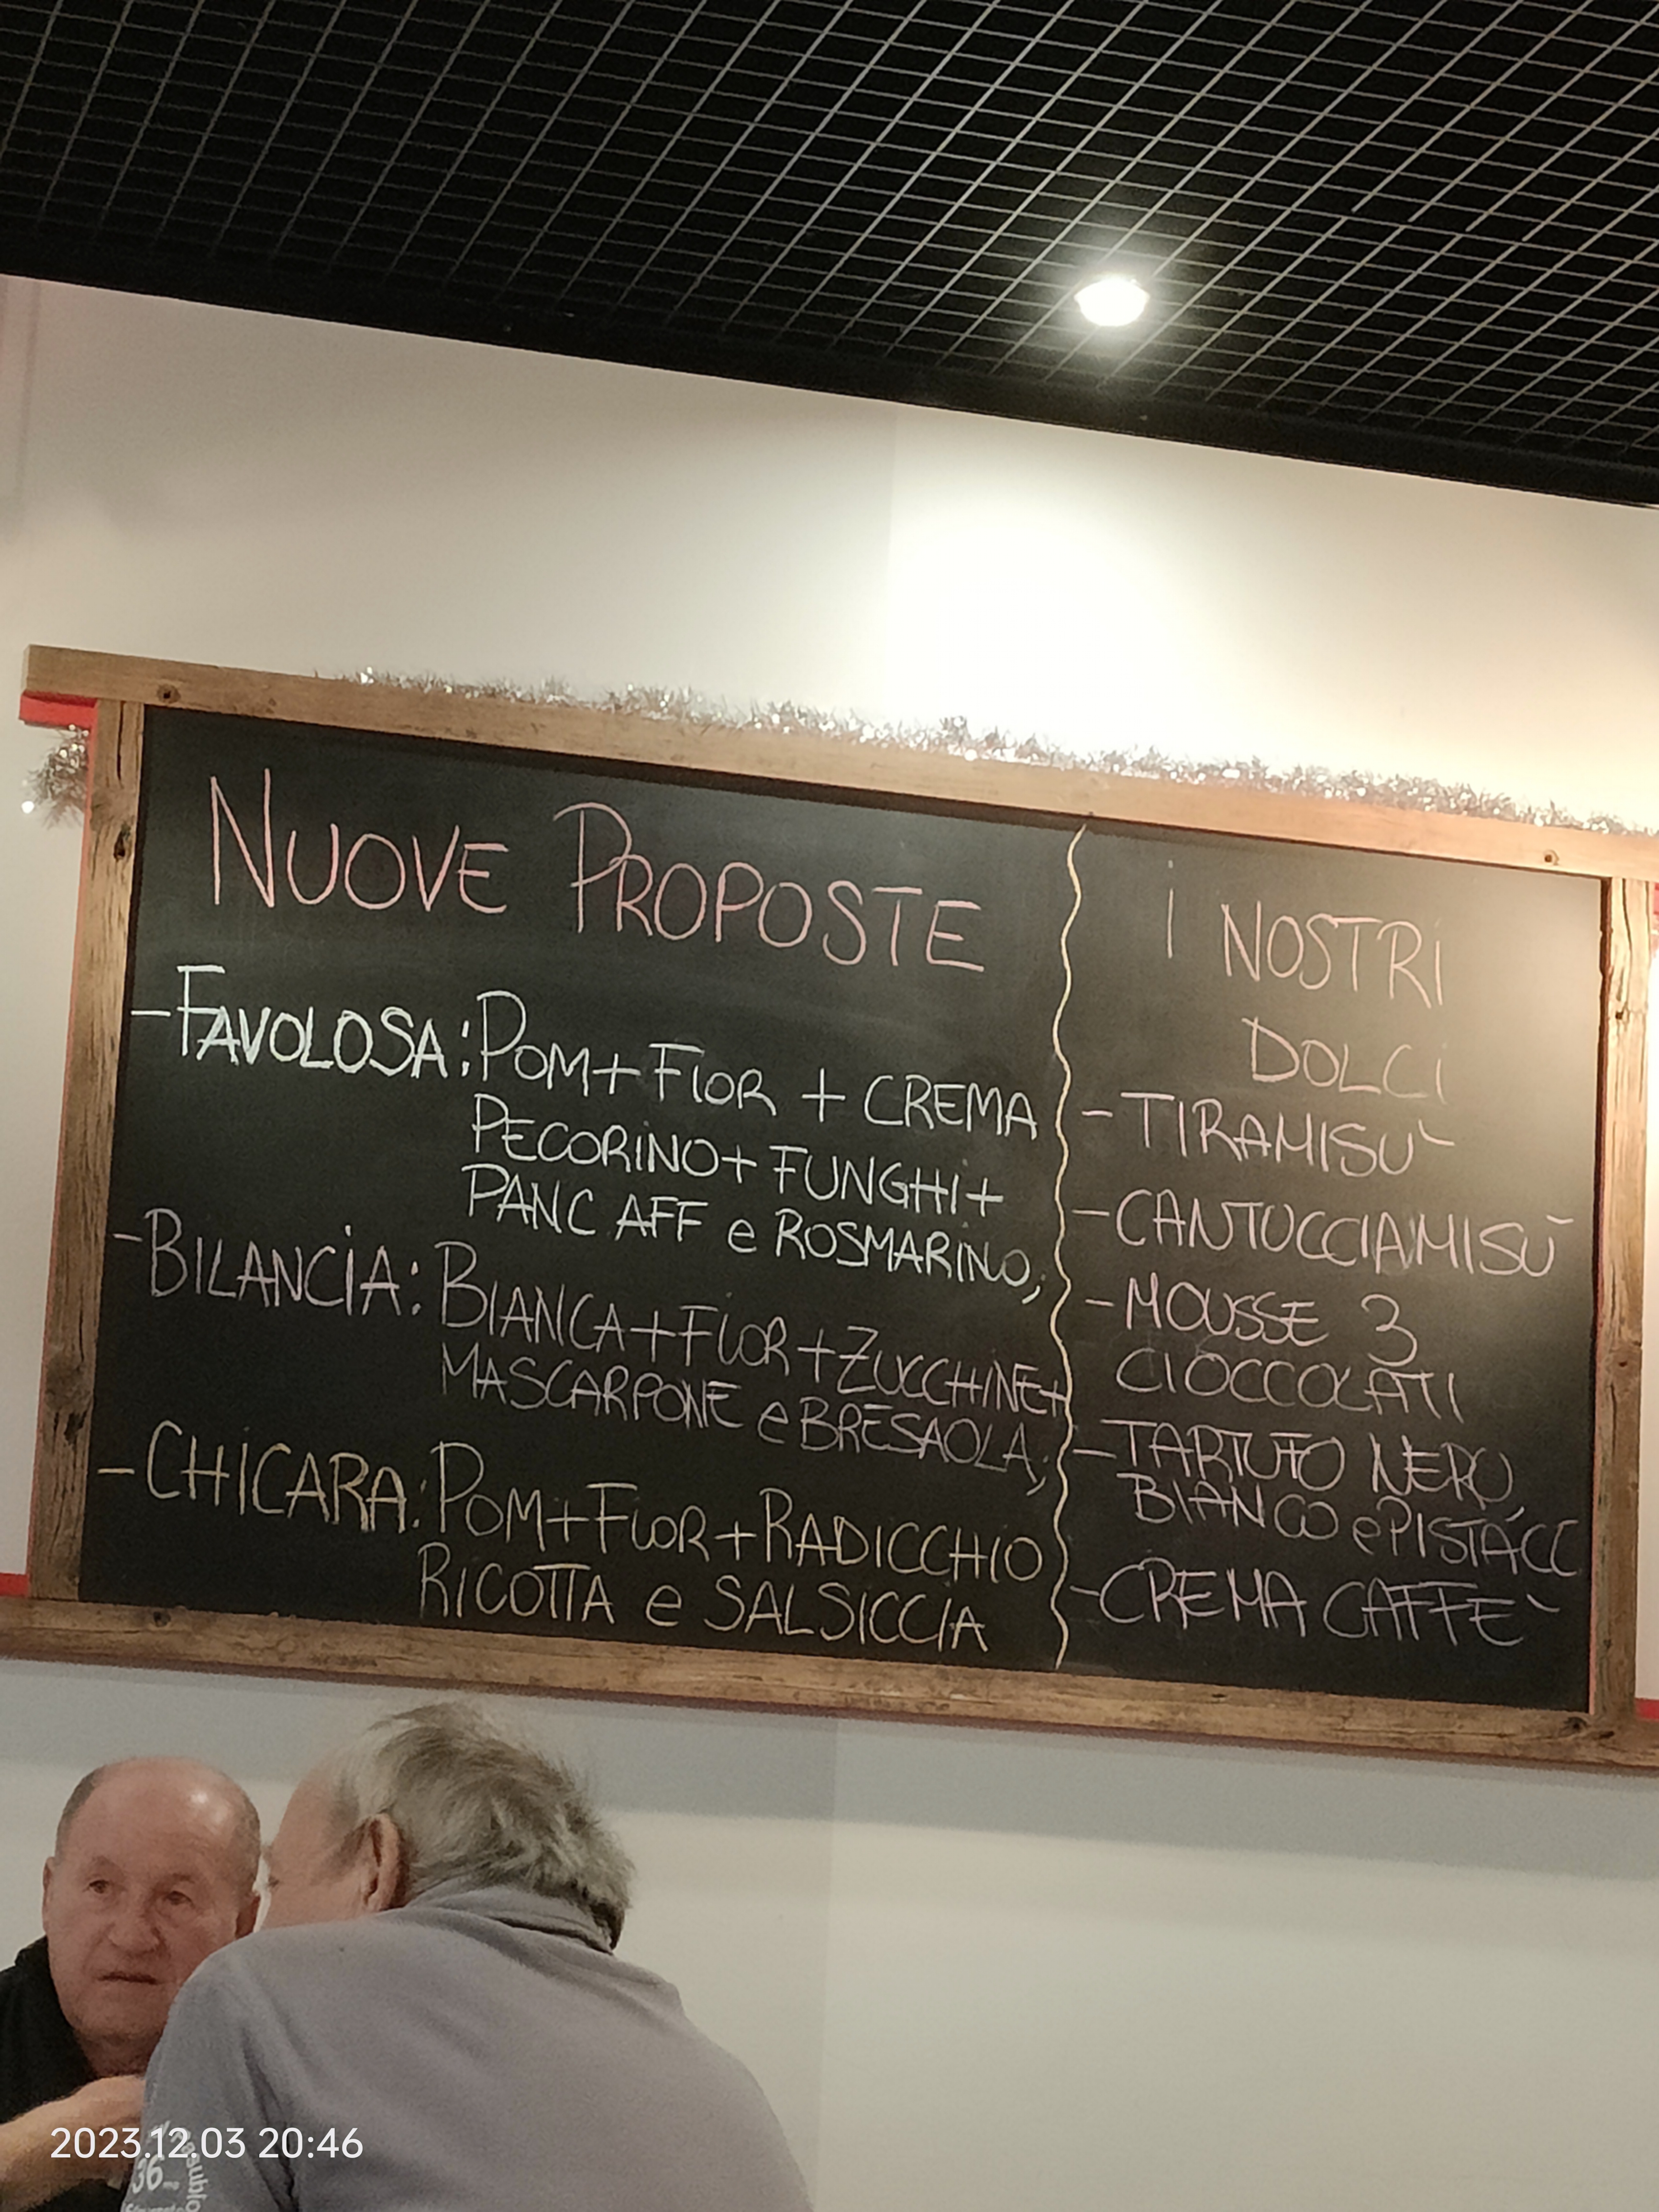 NUOVE PROPOSTE
-FAVOLOSA: POM+FIOR + CREMA
PECORINO+ FUNGHI+
PANC AFF e ROSMARINO;
-BILANCIA: BIANCA+FIOR+ZUCCHINE+
MASCARPONE e BRESAOLA;
-CHICARA: POM+FIOR+RADICCHIO
RICOTTA e SALSICCIA
I NOSTRI
DOLCI
-TIRAMISU`
-CANTUCCIAMISÙ
-MOUSSE 3
CIOCCOLATI
-TARTUFO NERO,
BIANCO e PISTACC
-CREMA CAFFE`
2023.12.03 20:46
36